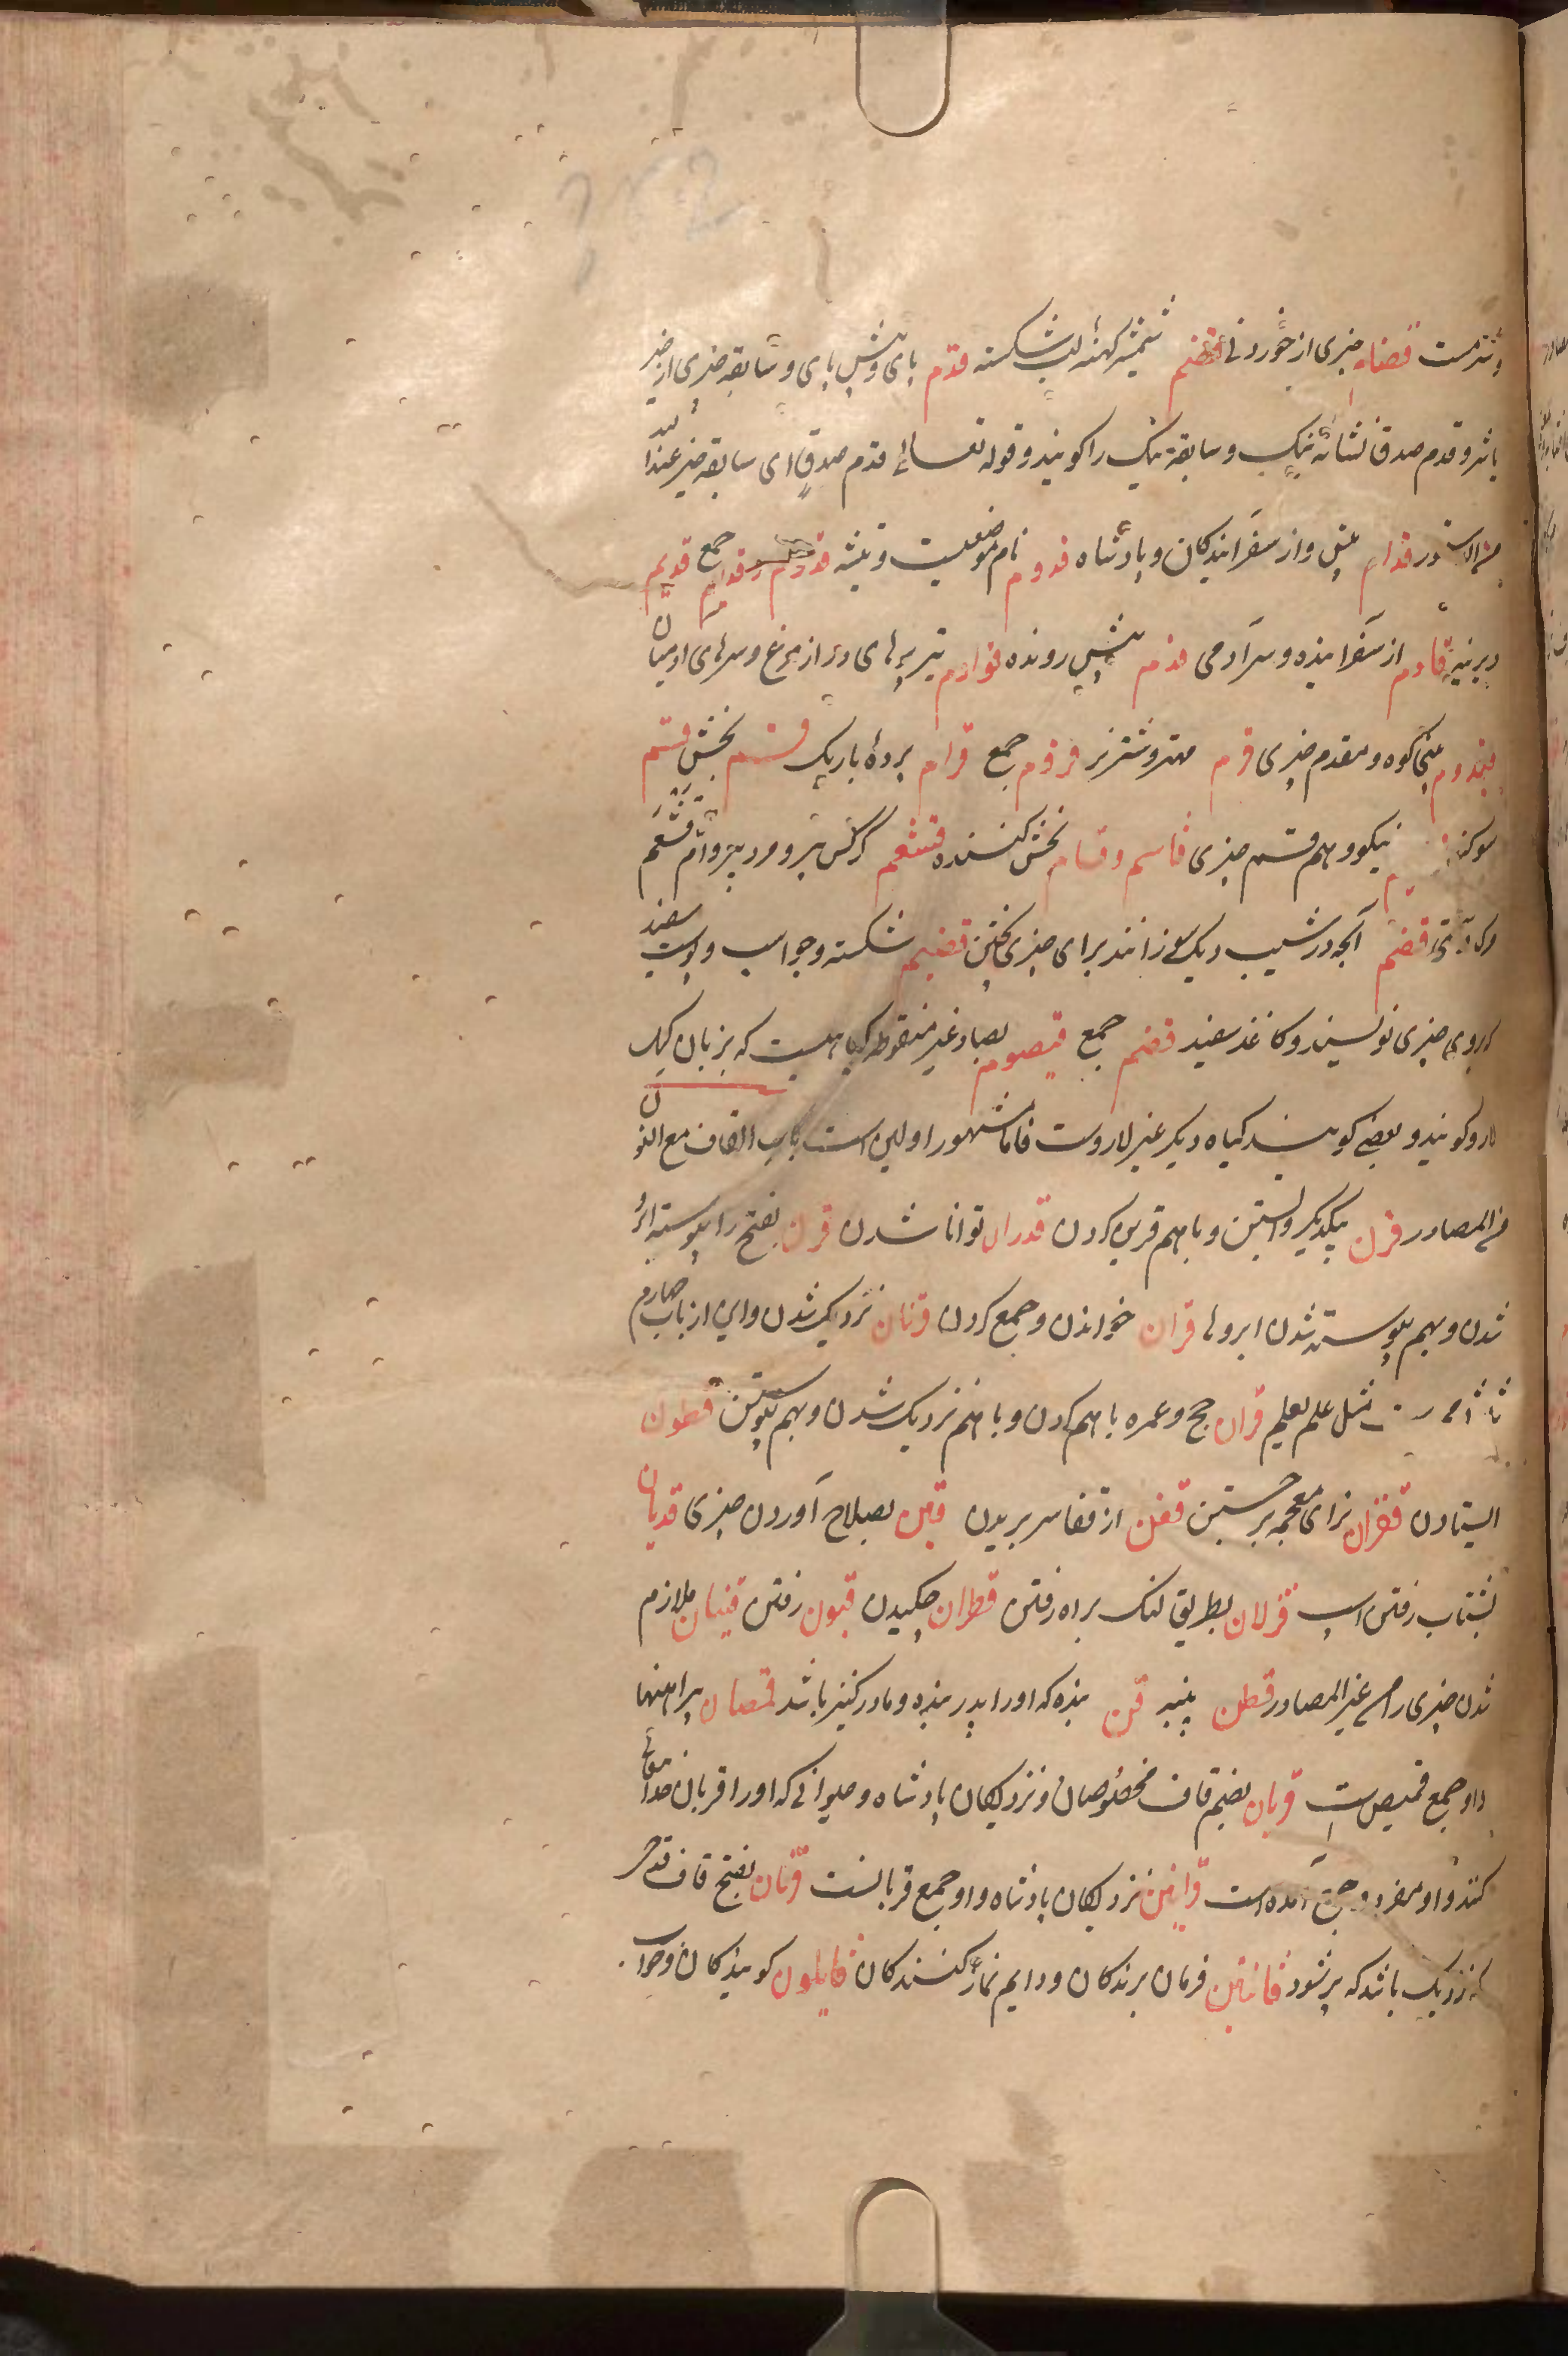 وتندست قضام چیزی از خوردنی قضم شمشیر کهنه لب شکسته قدم پای و پیش پای و سابقه چیزی از خیر
باشد و قدم صدق نشانه نیک و سابقه نیک را کویند و قوله تعالی قدم صدق ای سابقه خیر عند الله
قدام پیش و از سفر ایندکان و پادشاه قدوم نام موضعیست و تیشه قدم و قدایم جمع قدیم
دیرینه قادم از سفر اینده و سر آدمی قدم پیش رونده قوادم تیر پرهای دراز مرغ و سرهای ادمیان
قیدوم بینی کوه و مقدم چیزی قرم مهتر و شتر نر قروم جمع قرام پرده باریک قسم بخش قسم
سوکند نیکو و هم قسم چیزی قاسم و قسام بخش کننده قشعم کرکس پیر و مرد پیر و ام قشعم
قضم آنچه در شیب دیک سوزانند برای چیزی پختن قضیم شکسته و جو اسب و پوست سفید
که بروی چیزی نویسند و کاغذ سفید قضم جمع قیصوم بصاد غیر منقوطه کیاهیست که بزبان کیل
لارو کویند و بعضی کویند کیاه دیکر غیر لاروست فاما مشهور اولین است باب القاف مع النون
من المصادر قرن بیکدیکر وابستن و با هم قرین کردن قدران توانا شدن قرن بفتح را پیوسته ابرو
شدن و بهم پیوسته شدن ابروها قران خواندن و جمع کردن قربان نزدیک شدن و این از باب چهارم
مثل علم یعلم قران حج و عمره با هم کردن و با هم نزدیک شدن و بهم پیوستن قطون
ایستادن قفزان بزای معجمه برجستن قفن از قفا سر بریدن قین بصلاح آوردن چیزی قدیان
بشتاب رفتن اسپ قزلان بطریق لنک براه رفتن قطران چکیدن قبون رفتن قنیان ملازم
شدن چیزی را من غیر المصادر قطن پنبه قن بنده که او را پدر بنده و مادر کنیز باشد قمصان پیراهنها
و او جمع قمیص است قربان بضم قاف مخصوصان و نزدیکان پادشاه و حیوانی که او را قربان خدایتعالی
کنند و او مفرد و جمع آمده است قرابین نزدیکان پادشاه و او جمع قربانست قربان بفتح قاف قدحی
که نزدیک باشد که پر شود قانتین فرمان برندکان و دایم نماز کنندکان قایلون کویندکان و خواب